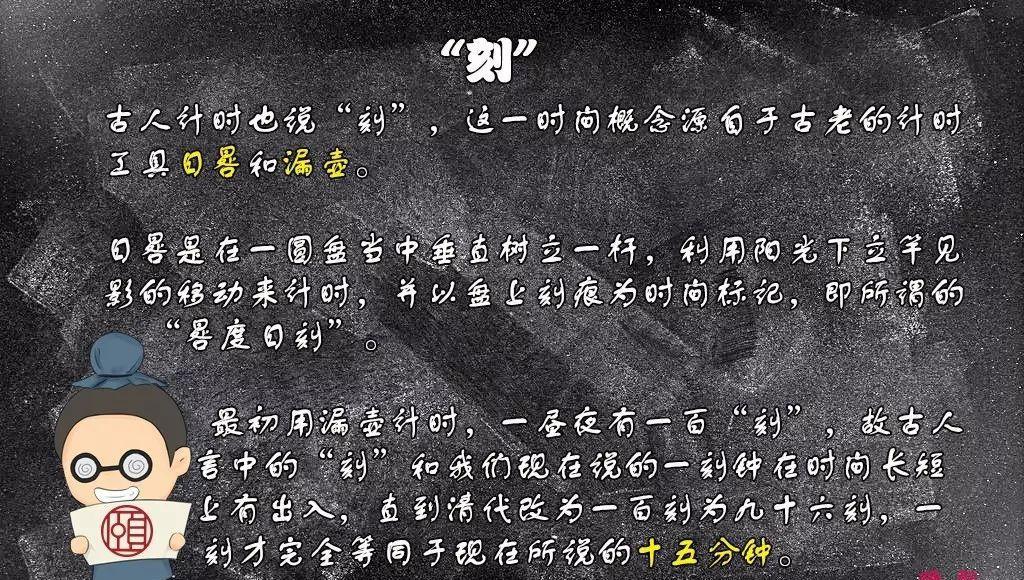 “刻”
古人计时也说“刻”，这一时间概念源自于古老的计时
工具日晷和漏壶。
日晷是在一圆盘当中垂直树立一杆，利用阳光下立竿见
影的移动来计时，并以盘上刻痕为时间标记，即所谓的
“晷度日刻”。
最初用漏壶计时，一昼夜有一百“刻”，故古人
言中的“刻”和我们现在说的一刻钟在时间长短
上有出入，直到清代改为一百刻为九十六刻，一
刻才完全等同于现在所说的十五分钟。